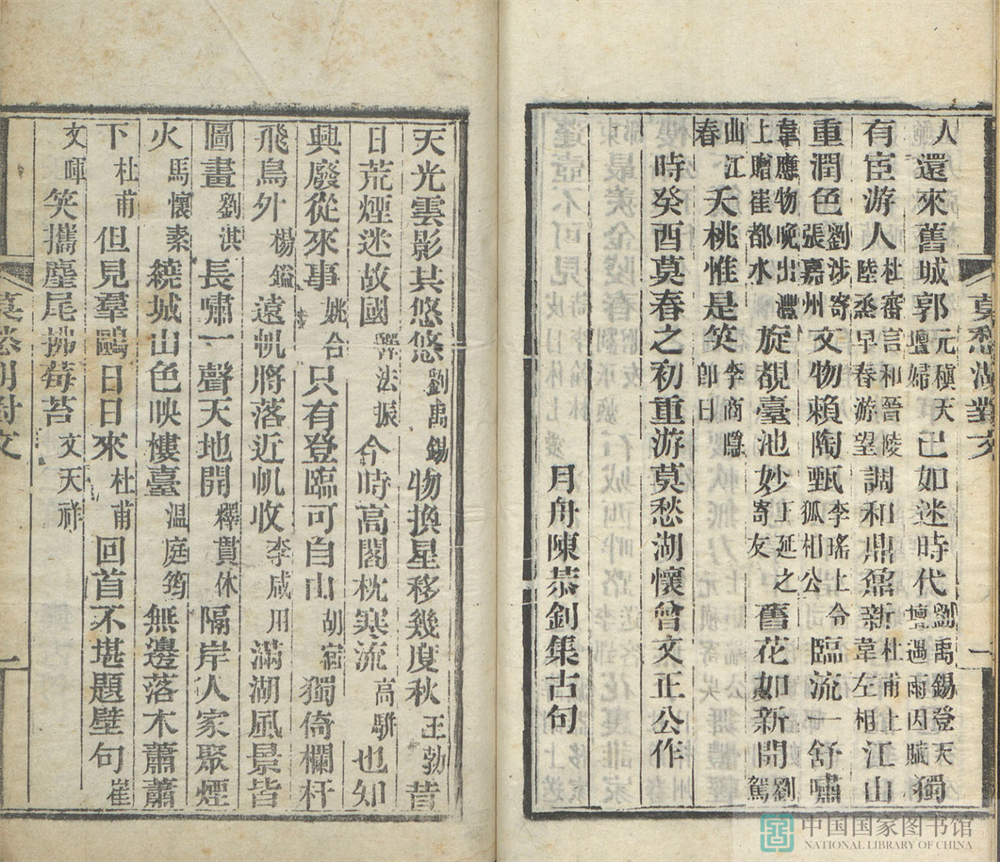 人還來舊城郭元稹天壇婦已如迷時代劉禹錫登天壇遇雨因賦獨
有宦游人杜審言和晉陵陸丞早春游望調和鼎鼐新杜甫上韋左相江山
重潤色劉涉寄張嘉州文物賴陶甄李瑤上令狐相公臨流一舒嘯
韋應物晩出灃上贈崔都水旋覩臺池妙王延之寄友舊花如新開劉駕
曲江春夭桃惟是笑李商隱即日
時癸酉莫春之初重游莫愁湖懷曾文正公作
月舟陳恭釗集古句
莫愁湖對文
一
天光雲影共悠悠劉禹錫物換星移幾度秋王勃昔
日荒煙迷故國釋法振今時高閣枕寒流高駢也如
興廢從來事姚合只有登臨可自由胡宿獨倚欄杆
飛鳥外楊鎰遠帆將落近帆收李咸用滿湖風景皆
圖畫劉淇長嘯一聲天地開釋貫休隔岸人家聚煙
火馬懷素繞城山色映樓臺溫庭筠無邊落木蕭蕭
下杜甫但見羣鷗日日來杜甫回首不堪題壁句崔
文暉笑攜麈尾拂莓苔文天祥
莫愁湖對文
一
中国国家图书馆
NATIONAL LIBRARY OF CHINA